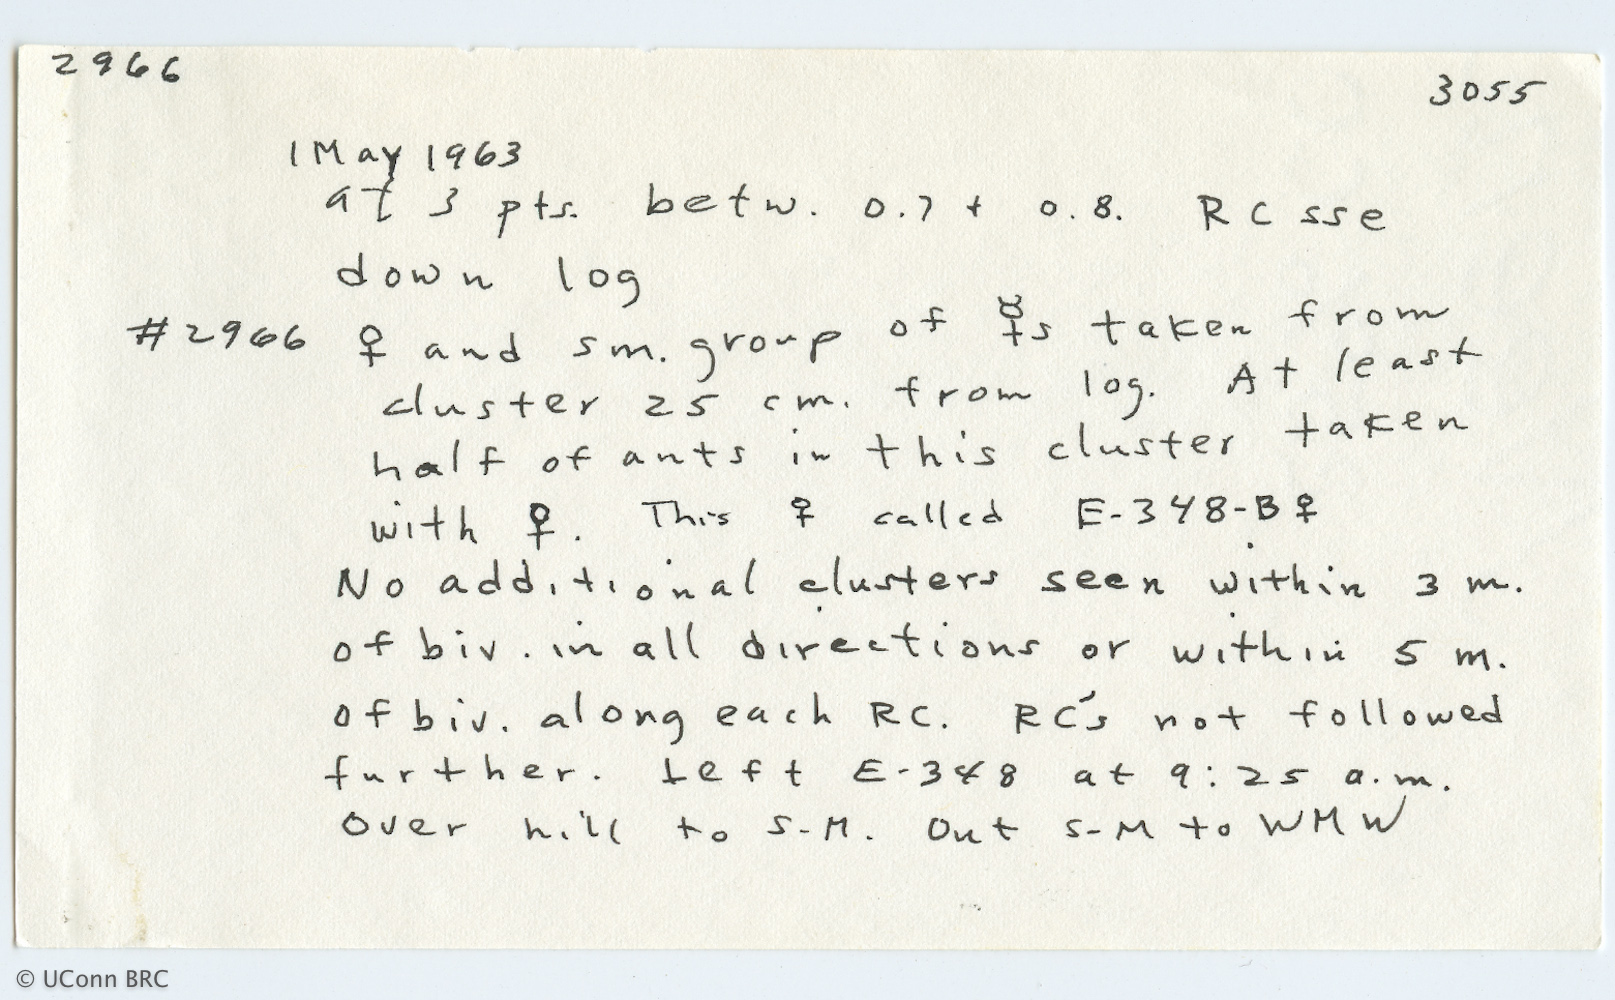 2966
3055
1 May 1963
at 3 pts. betw. 0.7 + 0.8. RC sse
down log
#2966 ♀ and sm. group of ☿s taken from
cluster 25 cm. from log. At least
half of ants in this cluster taken
with ♀. This ♀ called E-348-B♀
No additional clusters seen within 3 m.
of biv. in all directions or within 5 m.
of biv. along each RC. RC's not followed
further. Left E-348 at 9:25 a.m.
Over hill to S-M. Out S-M to WMW
© UConn BRC